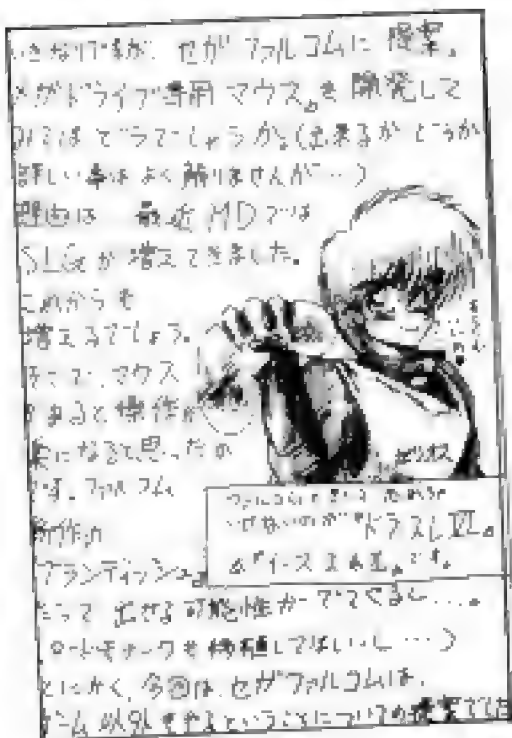 いきなりですが、セガファルコムに提案。
メガドライブ専用マウス。を開発して
みてはどうでしょうか。(出来るかどうか
詳しい事はよく解りませんが…)
理由は 最近MDでは
SLGが増えてきました。
これからも
増えるでしょう。
そこで、マウス
があると操作が
楽になると思ったの
です。ファルコム
新作の
ブランディッシュ。
だって 出せる可能性がでてくるし…。
ロードモナークも移植してほしいし…)
とにかく、今回は、セガファルコムは、
ゲーム以外をやるということについての提案でした
ガリオス
ファルコムで
ドラスレⅥ。
イースⅠ&Ⅱ。です。